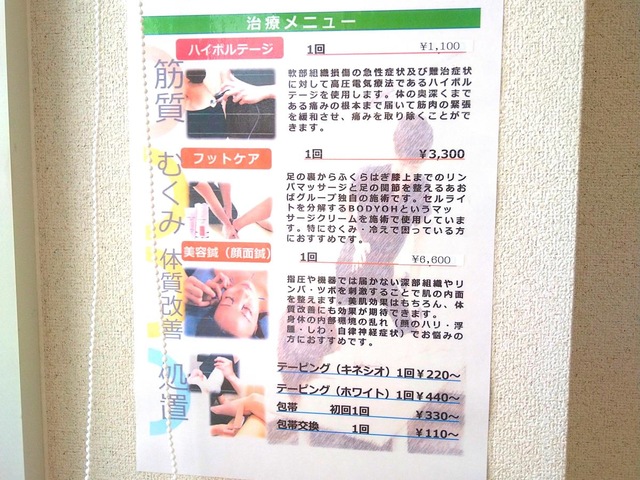 治療メニュー
ハイボルテージ 1回 ¥1,100
筋質
軟部組織損傷の急性症状及び難治症状
に対して高圧電気療法であるハイボル
テージを使用します。体の奥深くまで
ある痛みの根本まで届いて筋肉の緊張
を緩和させ、痛みを取り除くことがで
きます。
フットケア 1回 ¥3,300
むくみ
足の裏からふくらはぎ膝上までのリン
パマッサージと足の関節を整えるあお
ばグループ独自の施術です。セルライ
トを分解するBODYOHというマッ
サージクリームを施術で使用しています
。特にむくみ・冷えで困っている方
におすすめです。
美容鍼（顔面鍼） 1回 ¥6,600
体質改善
指圧や機器では届かない深部組織やリ
ンパ・ツボを刺激することで肌の内面
を整えます。美肌効果はもちろん、体
質改善にも効果が期待できます。
身体の内部環境の乱れ（顔のハリ・浮
腫・しわ・自律神経症状）でお悩みの
方におすすめです。
処置
テーピング（キネシオ）1回¥220～
テーピング（ホワイト）1回¥440～
包帯 初回1回 ¥330～
包帯交換 1回 ¥110～